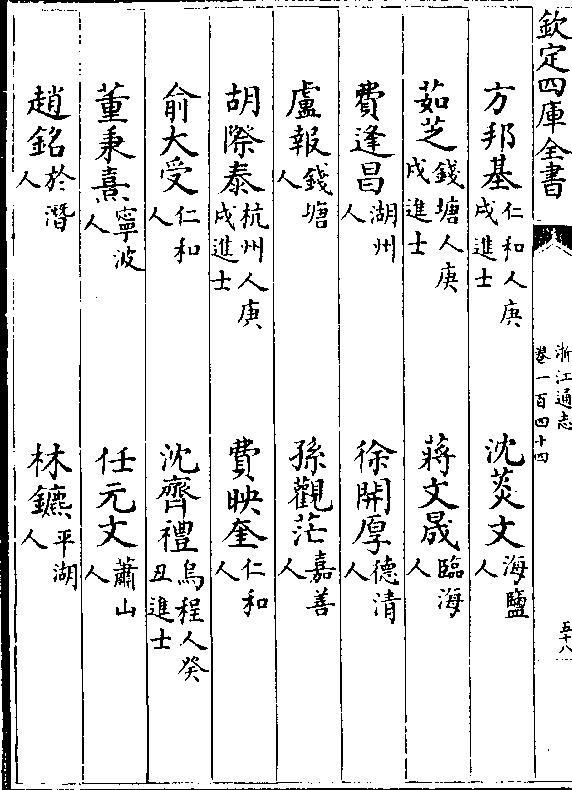 欽定四庫全書
浙江通志
卷一百四十四
五十八
方邦基仁和人庚戌進士 沈炎文海鹽人
茹芝錢塘人庚戌進士 蔣文晟臨海人
費逢昌湖州人 徐開厚德清人
盧報錢塘人 孫觀茫嘉善人
胡際泰杭州人庚戌進士 費映奎仁和人
俞大受仁和人 沈齊禮烏程人癸丑進士
董秉熹寧波人 任元文蕭山人
趙銘於潛人 林鑣平湖人